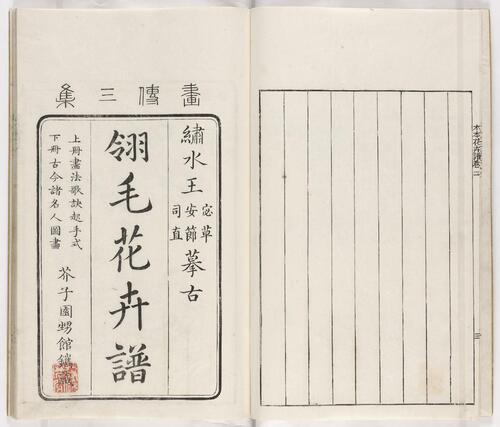 畫傳三集
繡水王宓草安節司直摹古
翎毛花卉譜
上冊畫法歌訣起手式
下冊古今諸名人圖畫
芥子園甥館鐫藏
木本花卉譜卷二
三